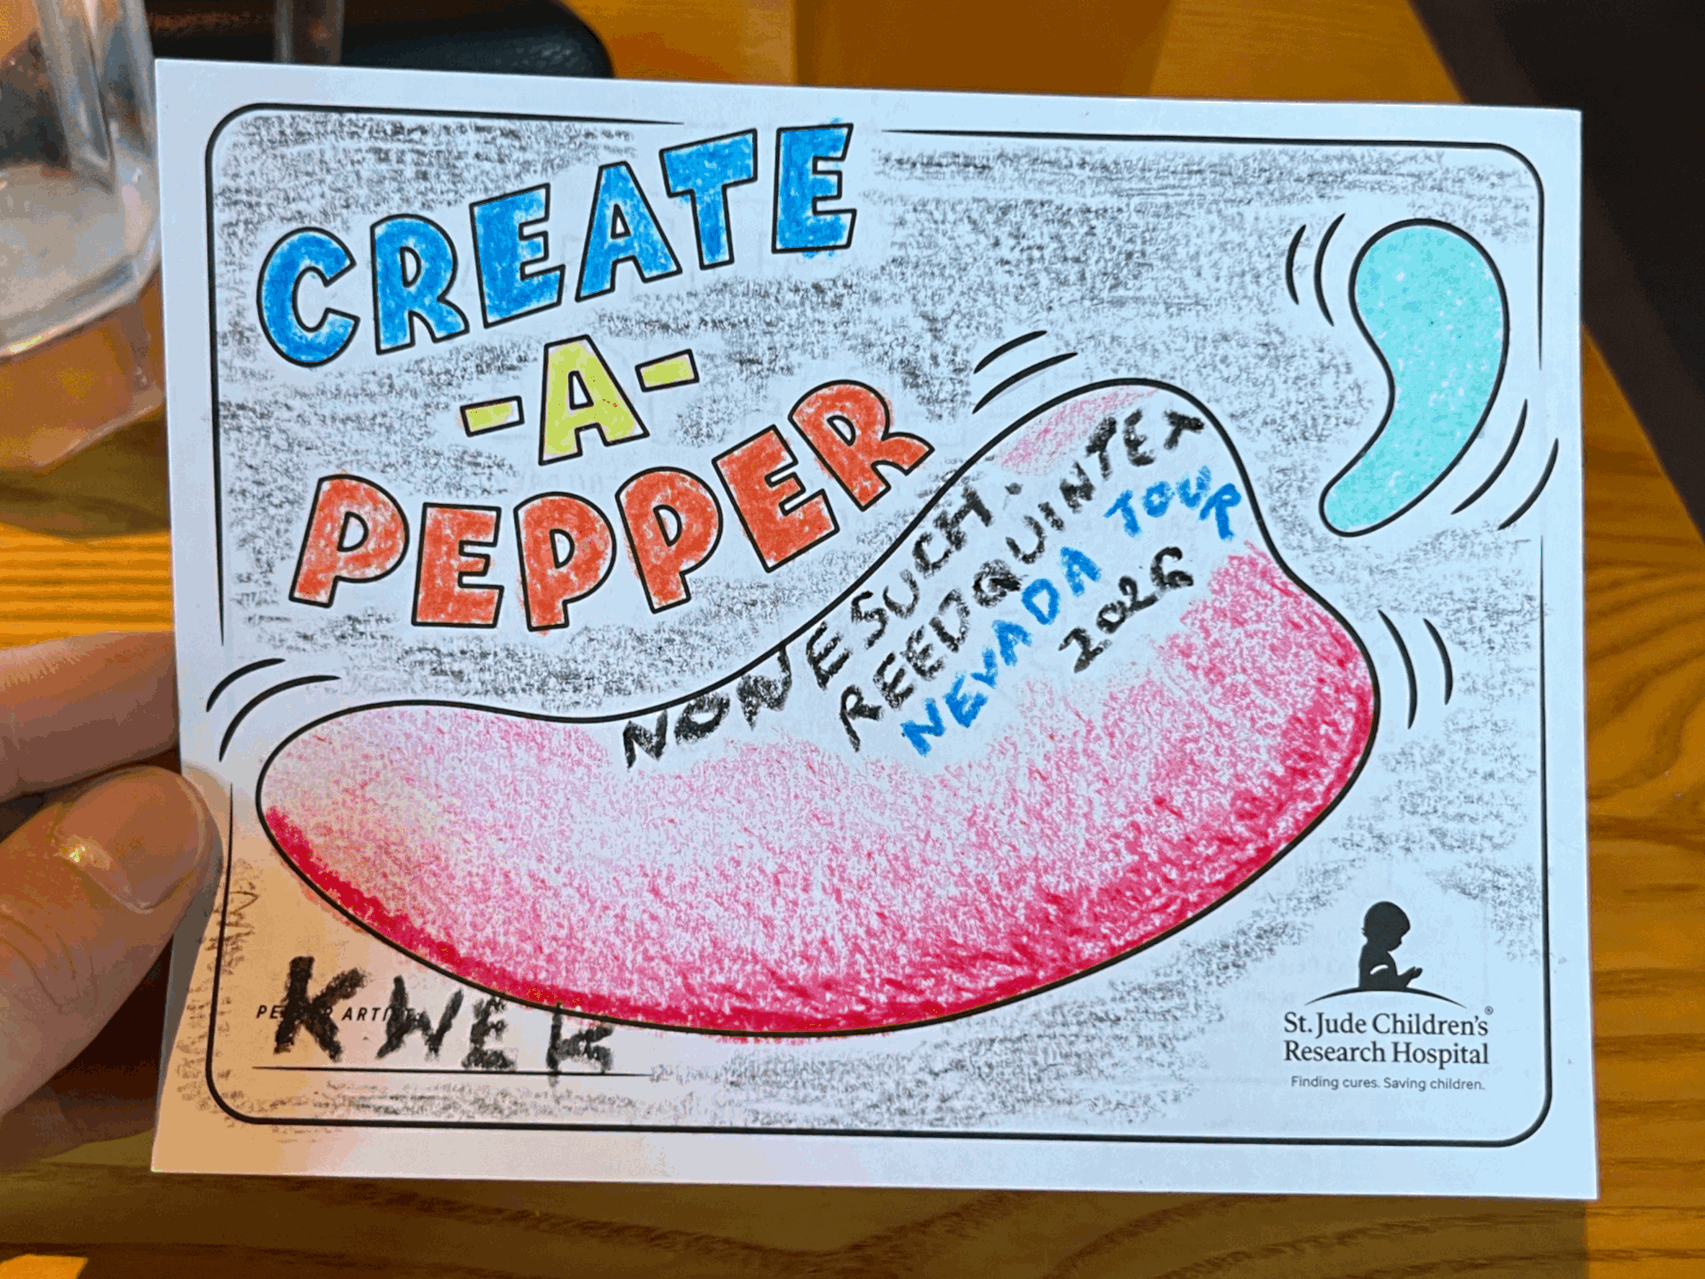 CREATE
-A-
PEPPER
NONESUCH
REED QUINTET
NEVADA TOUR
2026
PEPPER ARTIST:
KWEB
St. Jude Children's®
Research Hospital
Finding cures. Saving children.